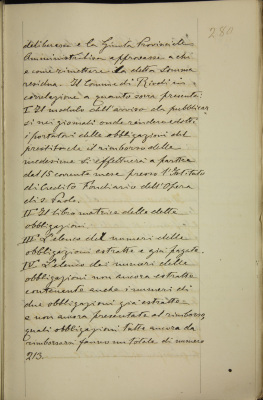 280
deliberare e la Giunta Provinciale
Amministrativa approvasse a chi
e come rimettere la detta somma
residua. Il Comune di Rivoli in
correlazione a quanto sovra presenta:
I Il modulo dell'avviso da pubblicar
si nei giornali onde rendere edotti
i portatori delle obbligazioni del
prestito che il rimborso delle
medesime si effettuerà a partire
dal 15 corrente mese presso l'Istituto
di Credito Fondiario dell'Opera
di S. Paolo.
II Il libro matrice delle dette
obbligazioni.
III L'elenco dei numeri delle
obbligazioni estratte e già pagate.
IV L'elenco dei numeri delle
obbligazioni non ancora estratte
contenente anche i numeri di
due obbligazioni già estratte
e non ancora presentate al rimborso
quali obbligazioni tutte ancora da
rimborsarsi fanno un totale di numero
213.